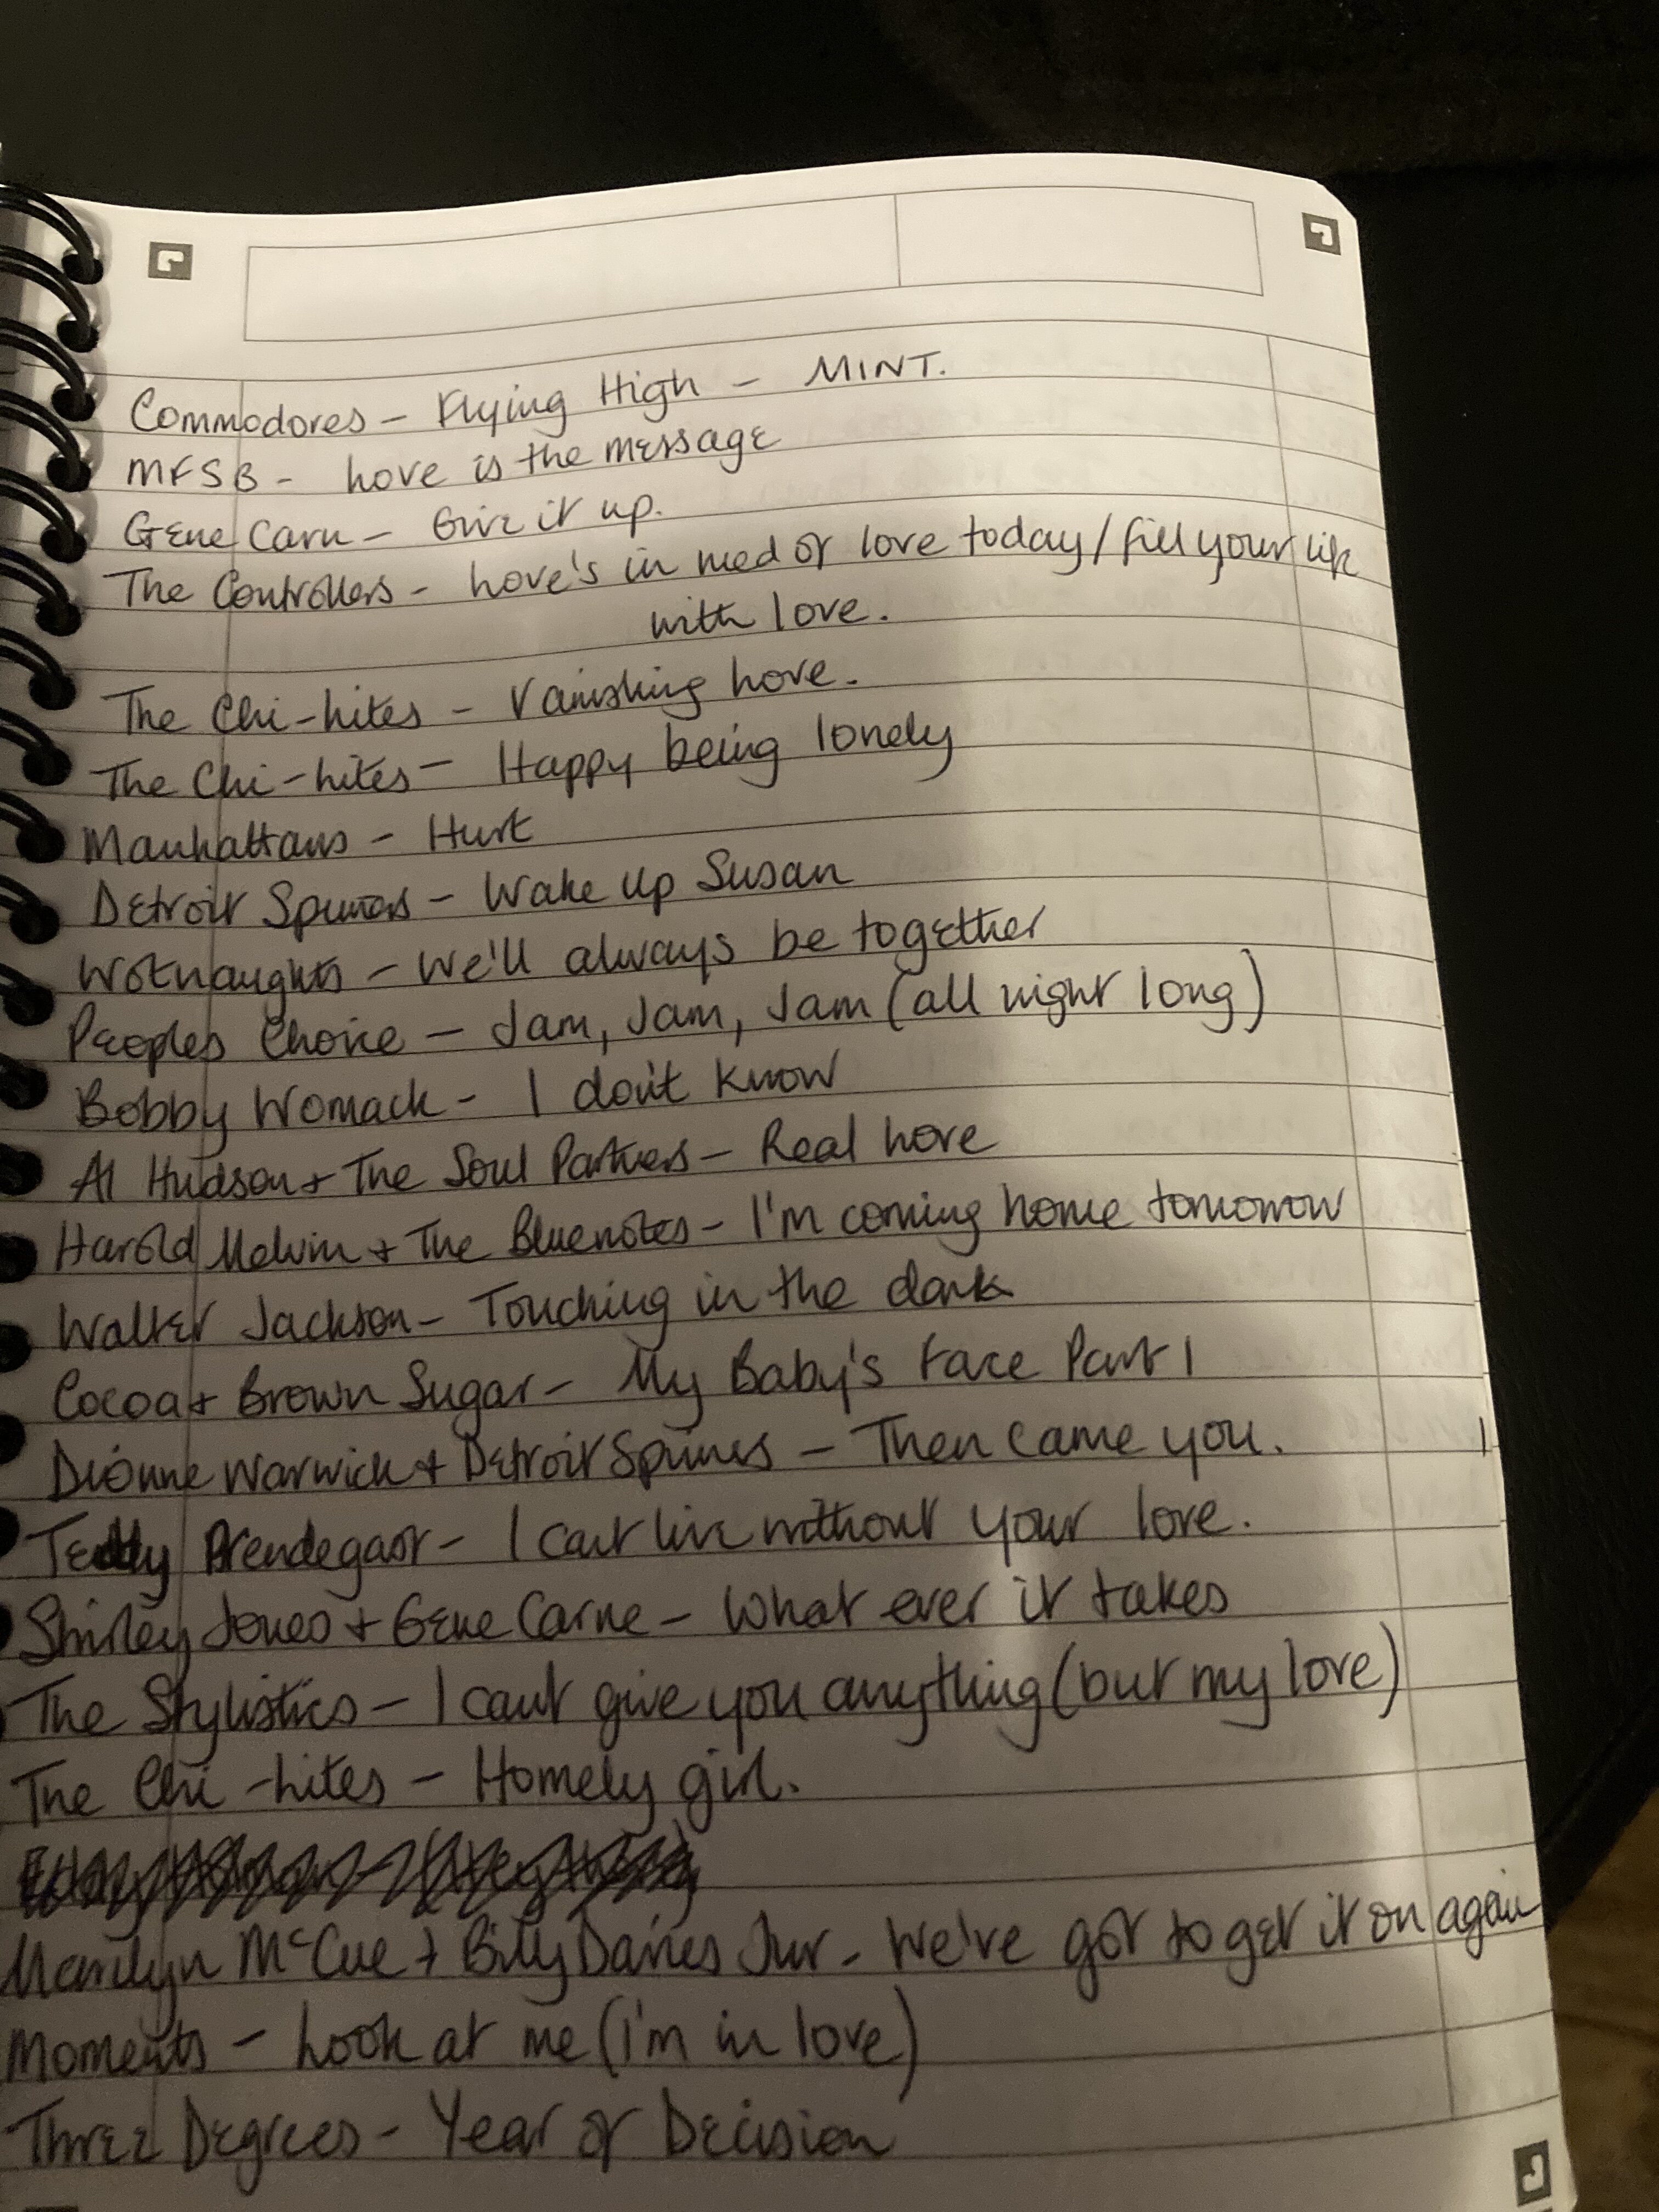 Commodores - Flying High - MINT.
MFSB - Love is the message
Gene Carn - Give it up.
The Controllers - Love's in need of love today/fill your life
with love.
The Chi-Lites - Vanishing Love.
The Chi-Lites - Happy being lonely
Manhattans - Hurt
Detroit Spinners - Wake Up Susan
Wotnaughts - We'll always be together
Peoples Choice - Jam, Jam, Jam (all night long)
Bobby Womack - I don't know
Al Hudson + The Soul Partners - Real Love
Harold Melvin + The Bluenotes - I'm coming home tomorrow
Walter Jackson - Touching in the dark
Cocoa + Brown Sugar - My Baby's Face Part 1
Dionne Warwick + Detroit Spinners - Then came you.
Teddy Prendegast - I cant live without your love.
Shirley Jones + Gene Carne - What ever it takes
The Stylistics - I cant give you anything (but my love)
The Chi-Lites - Homely girl.
Marilyn McCue + Billy Davies Jnr - We've got to get it on again
Moments - Look at me (I'm in love)
Three Degrees - Year of Decision